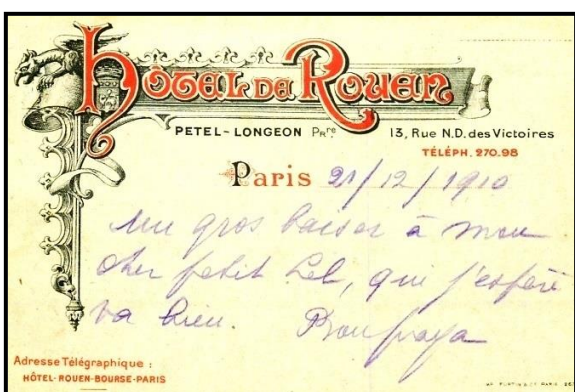 HÔTEL DE ROUEN
PETEL-LONGEON PRRE
13, Rue N.D. des Victoires
TÉLÉPH. 270.98
Paris 21/12/1910
un gros baiser à mon
cher petit Lel, qui j'espère
va bien.
Adresse Télégraphique :
HÔTEL-ROUEN-BOURSE-PARIS